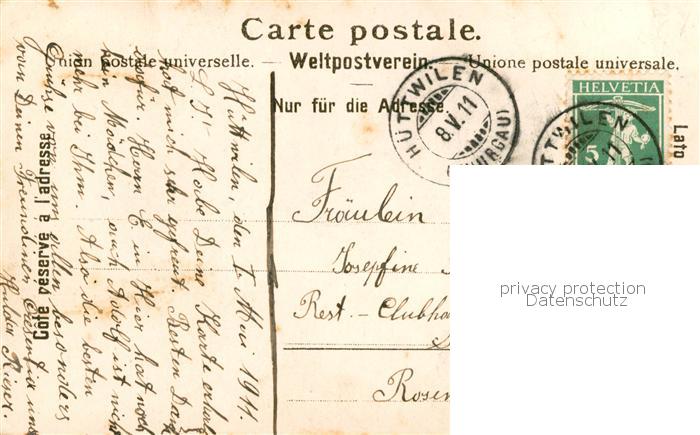 Carte postale.
Union postale universelle. — Weltpostverein. — Unione postale universale.
Nur für die Adresse.
Côté réservé à l'adresse
HÜTTWILEN
8.V.11
(THURGAU)
HELVETIA
5
HÜTTWILEN
11
Lato
Fräulein
Josepfine
Rest. - Clubha
Rosen
privacy protection
Datenschutz
Hüttwilen, den 7. Mai 1911.
L. J! Habe Deine Karte erhalt
hat mich sehr gefreut. Besten Dank
dafür. Herr E in Hier hat noch
kein Mädchen, auch Adolf ist nicht
mehr bei Ihm. Also die besten
Grüsse von uns allen besonders
von Deinen Freundinen und
Hulda Rieser.